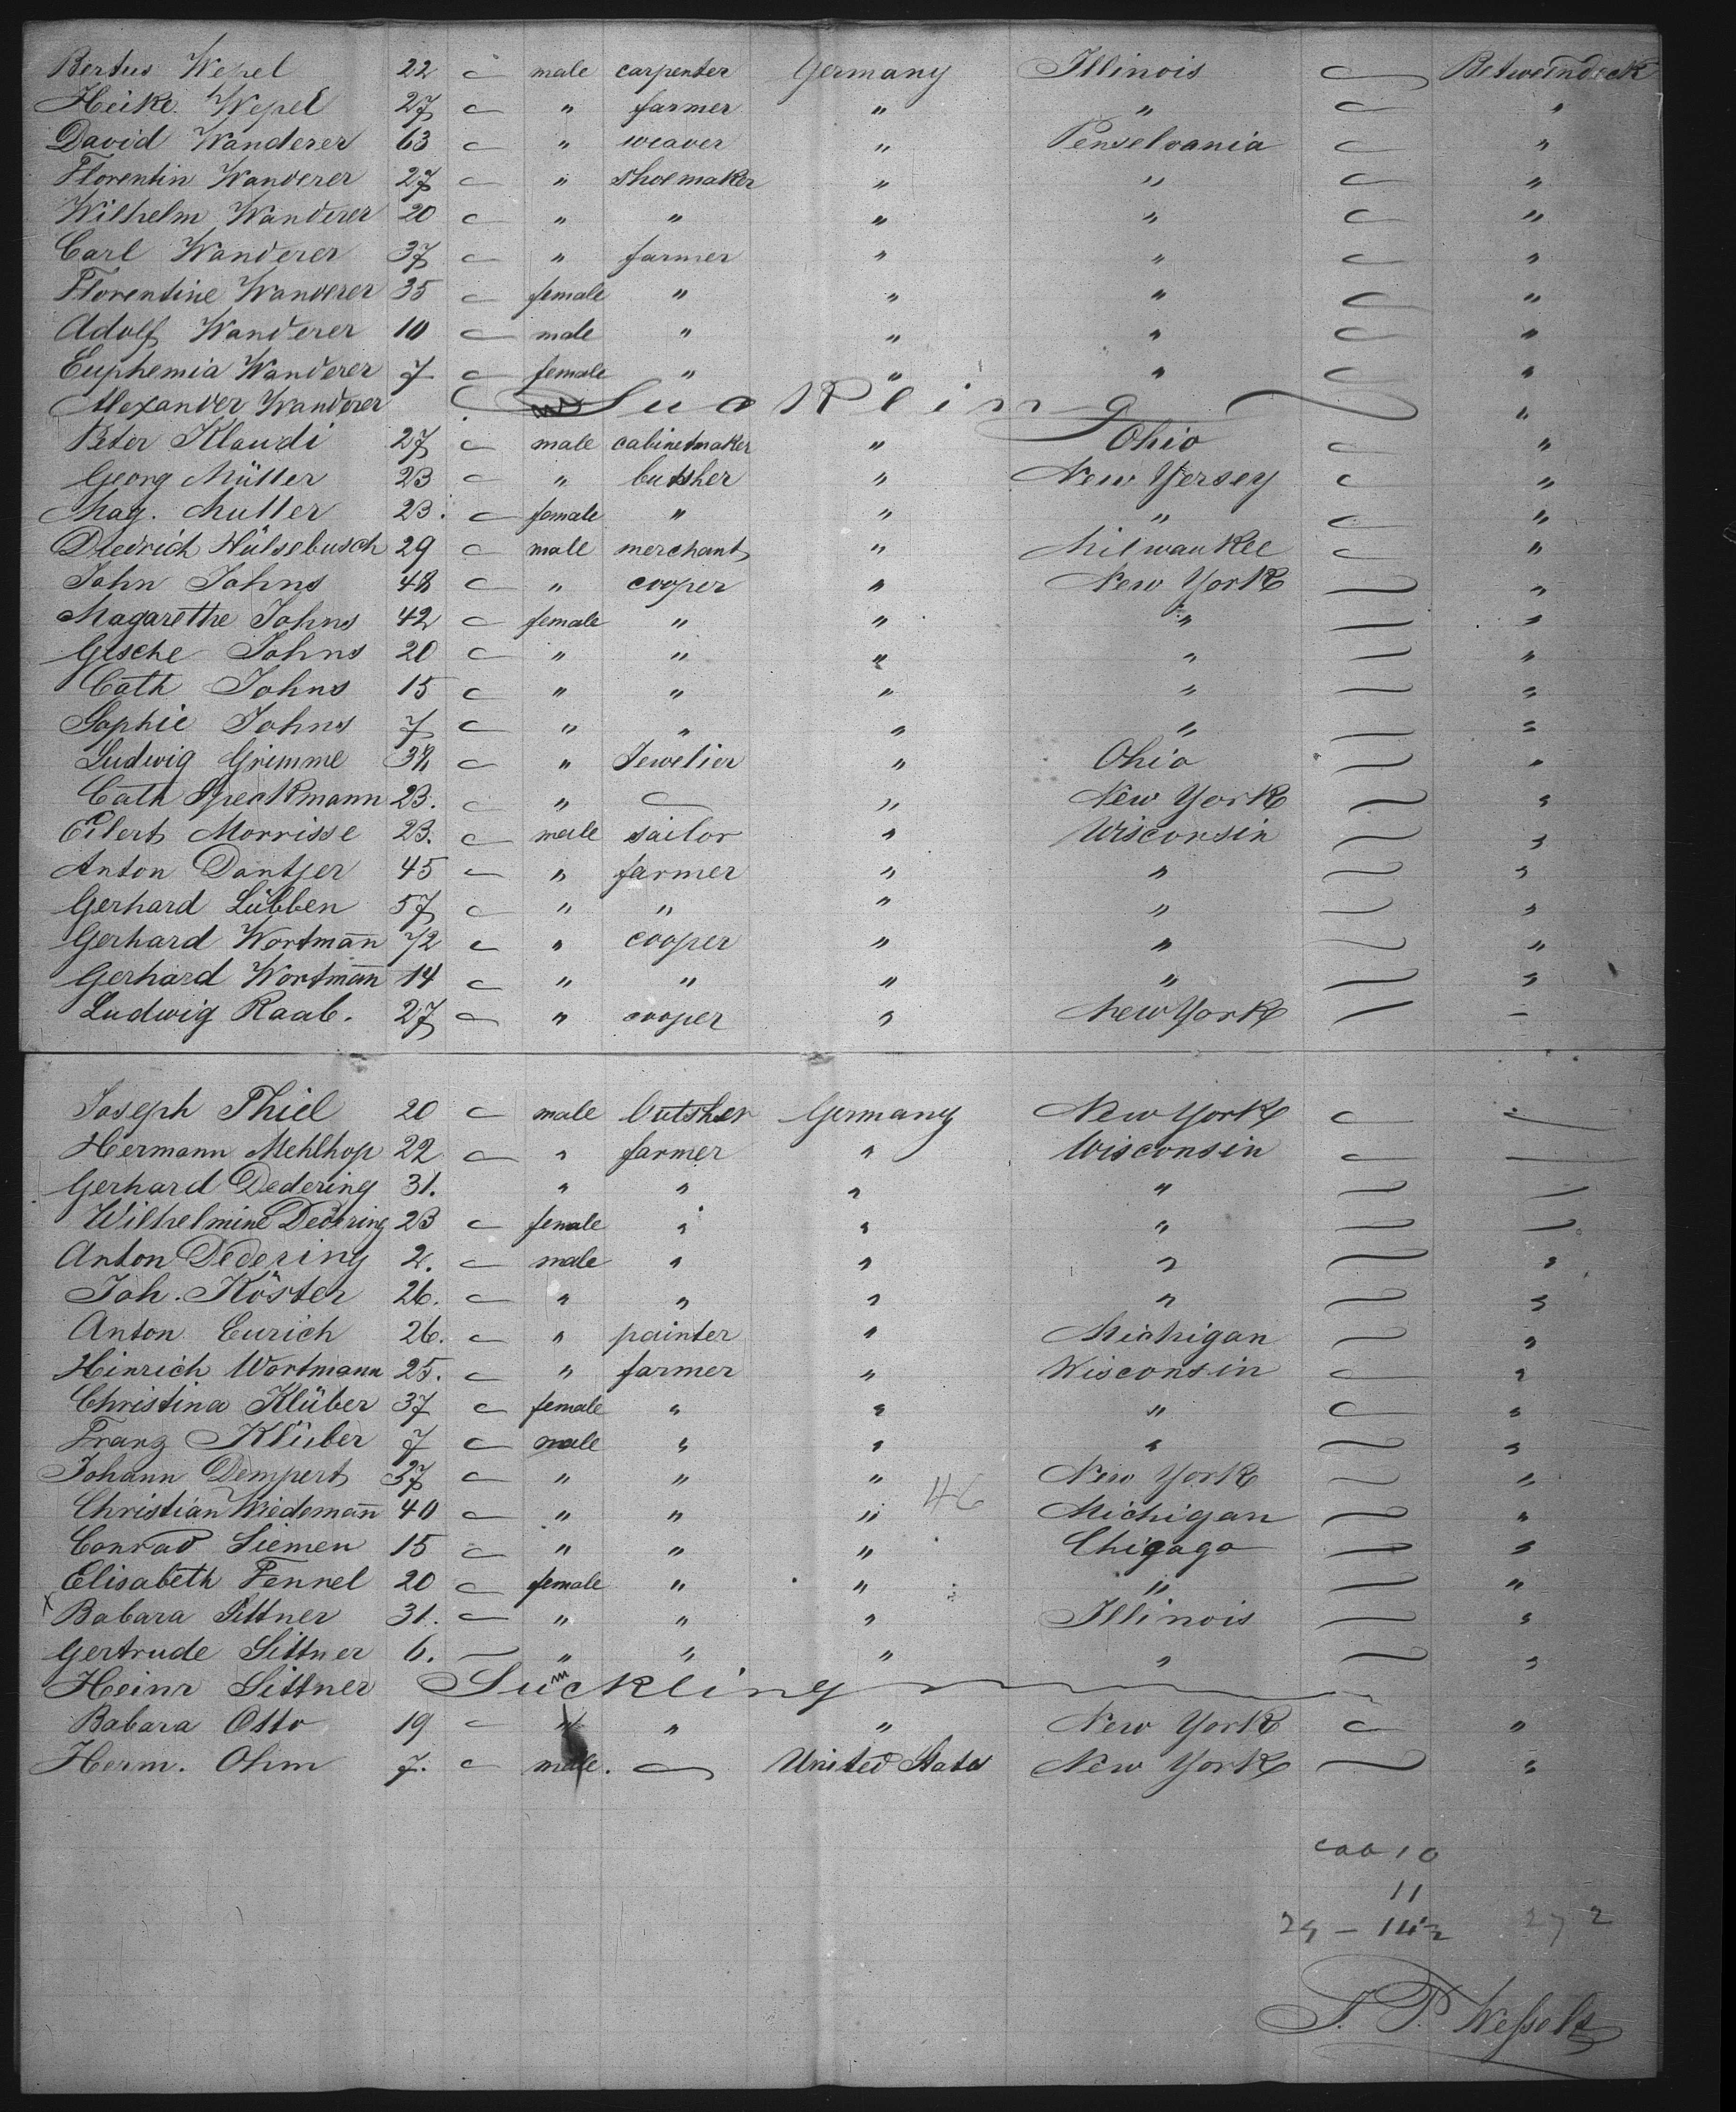 Bertus Wepel 22 c male carpenter Germany Illinois c Betweendeck
Heike Wepel 27 c " farmer " " c "
David Wanderer 63 c " weaver " Penselvania c "
Florentin Wanderer 27 c " shoemaker " " c "
Wilhelm Wanderer 20 c " " " " c "
Carl Wanderer 37 c " farmer " " c "
Florentine Wanderer 35 c female " " " c "
Adolf Wanderer 10 c male " " " c "
Euphemia Wanderer 7 c female " " " c "
Alexander Wanderer Suckling "
Peter Klaudi 27 c male cabinetmaker " Ohio c "
Georg Müller 23 c " butsher " New Yersey c "
Mag. Muller 23. c female " " " c "
Diedrich Hülsebusch 29 c male merchant " Milwaukee c "
John Johns 48 c " cooper " New York — "
Magarethe Johns 42 c female " " " — "
Gesche Johns 20 c " " " " — "
Cath Johns 15 c " " " " — "
Sophie Johns 7 c " " " " — "
Ludwig Grimme 38 c " Jewelier " Ohio — "
Cath Speckmann 23. c " — " New York — "
Eilert Morrisse 23. c male sailor " Wisconsin — "
Anton Dantjer 45 c " farmer " " — "
Gerhard Lübben 57 c " " " " — "
Gerhard Wortmann 72 c " cooper " " — "
Gerhard Wortmann 14 c " " " " — "
Ludwig Raab. 27 c " cooper " New York — –
Joseph Thiel 20 c male butsher Germany New York c —
Hermann Mehlhop 22 c " farmer " Wisconsin c —
Gerhard Dedering 31. " " " " — —
Wilhelmine Dedering 23 c female " " " — —
Anton Dedering 2. c male " " " — "
Joh. Köster 26. c " " " " — "
Anton Eurich 26. c " painter " Michigan — "
Hinrich Wortmann 25. c " farmer " Wisconsin c "
Christina Klüber 37 c female " " " c "
Franz Klüber 7 c male " " " — "
Johann Dempert 37 c " " " New York — "
46
Christian Wiedemann 40 c " " " Michigan — "
Conrad Siemen 15 c " " " Chigago — "
Elisabeth Fennel 20 c female " " " — "
x Babara Sittner 31. c " " " Illinois — "
Gertrude Sittner 6. — " " " " — "
Heinr Sittner Suckling m "
Babara Otto 19 c " " " New York c "
Herm. Ohm 7. c male. — United States New York — "
10
11
29 – 14½ 27 2
J. P. Wessels